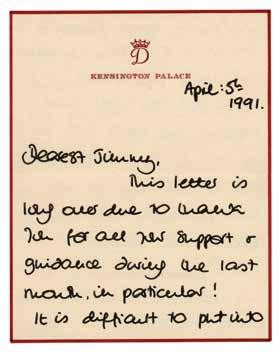 D
KENSINGTON PALACE
April: 5th
1991.
Dearest Jimmy,
This letter is
long over due to thank
him for all his support &
guidance during the last
month, in particular!
It is difficult to put into